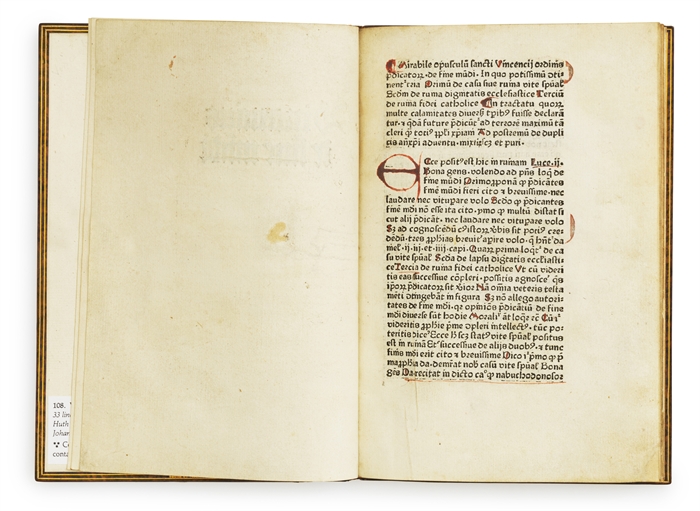 108.
33 lin
Huth
Johar
Co
conta
Mirabile opusculū sancti Vincencij ordinis
p̄dicatorꝝ · de fine mūdi · In quo potissimū ↄti
nent᷑ tria Primū de casu siue ruina vite spūal᷑
Scd̄m de ruina dignitatis ecclesiastice Terciū
de ruina fidei catholice In tractatu quorꝝ
multe calamitates diuersis tꝑib᷒ fuisse declarā
tur · ⁊ q̄dā future p̄dicūt᷑ ad terrorē maximū tā
cleri ꝙ toci᷒ ppl̄i xp̄iani Ad postremū de dupli
cis anxp̄i aduentu · mixti scz et puri ·
ECce posit᷒ est hic in ruinam Luce · ij ·
Bona gens · volendo ad pn̄s loq̄ de
fine mūdi Primo ꝓponā ꝙ p̄dicātes
finē mūdi fieri cito ⁊ breuissime · nec
laudare nec vitupare volo Scd̄o ꝙ p̄dicantes
finem mūdi nō esse ita cito · ymo ꝙ multū distat si
cut alij p̄dicāt · nec laudare nec vitupare volo
Sz ad cognoscēdū
dēdū · tres ꝓphias breuit᷑ aꝑire volo · q̄ hn̄t᷑ da
niel · ij · iij · et · iiij · capi · Quarꝝ prima loqt᷑ de ca
su vite spūal᷑ Scda de lapsu dignitatis ecclīasti
ce Tercia de ruina fidei catholice Ut cū videri
tis eas successiue cōpleri · possitis agnosce᷑ q̄s
ip̄orꝝ p̄dicatorꝝ sit Nā omnia veteris testa
mēti ↄtingebāt in figura Sz nō allego autori
tates de fine mūdi · q̄r opiniōes p̄dicātiū de fine
mūdi diuerse sūt hodie Moralit᷑ āt loqr̄ Cū
videritis ꝓphīe p̄me ↄpleri intellect᷒ · tūc po
teritis dice᷑ Ecce h̄ scz stat᷒ vite spūal᷑ positus
est in ruinā Et successiue de alijs duob᷒ · ⁊ tunc
finis mūdi erit cito ⁊ breuissime Dico ꝙ p̄
ma ꝓphīa da · demrāt nob̄ casū vite spūal᷑ Bona
gēs Da · recitat in dicto ca° ꝙ nabuchodonosor